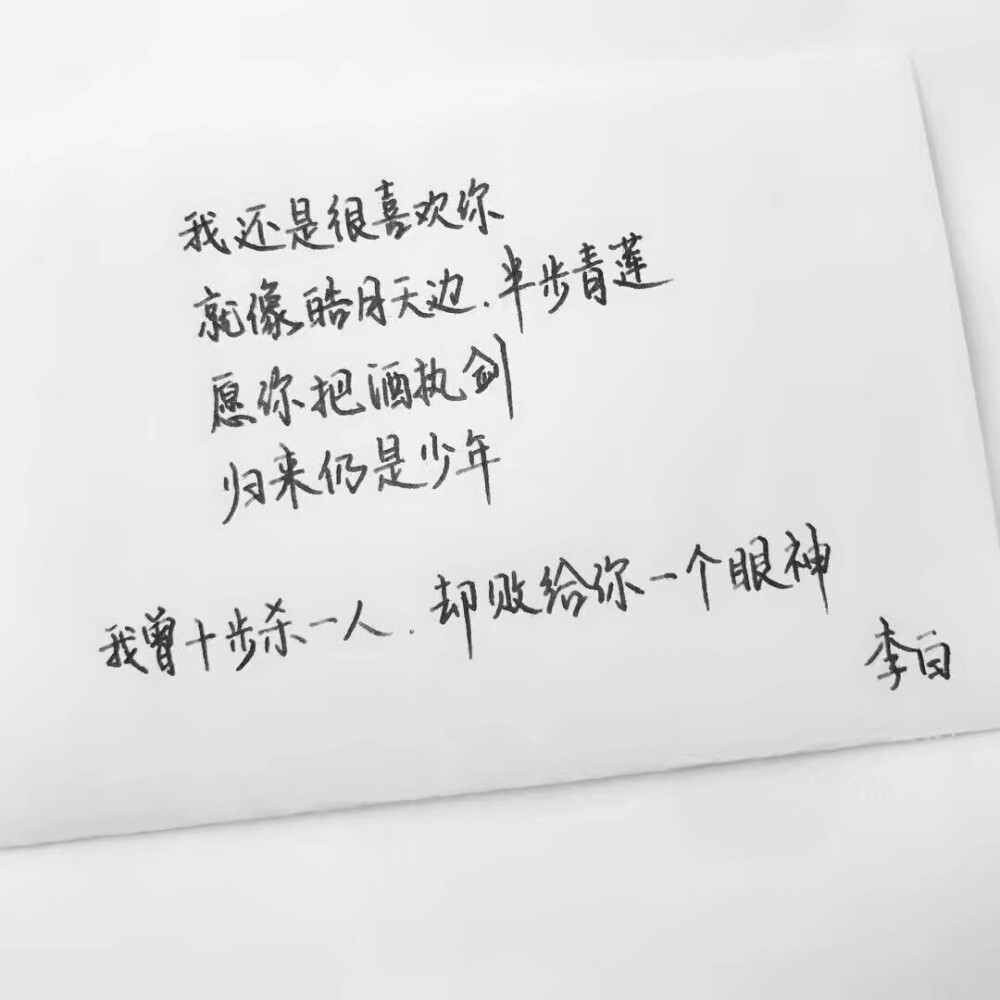 我还是很喜欢你
就像皓月天边.半步青莲
愿你把酒执剑
归来仍是少年
我曾十步杀一人.却败给你一个眼神
李白